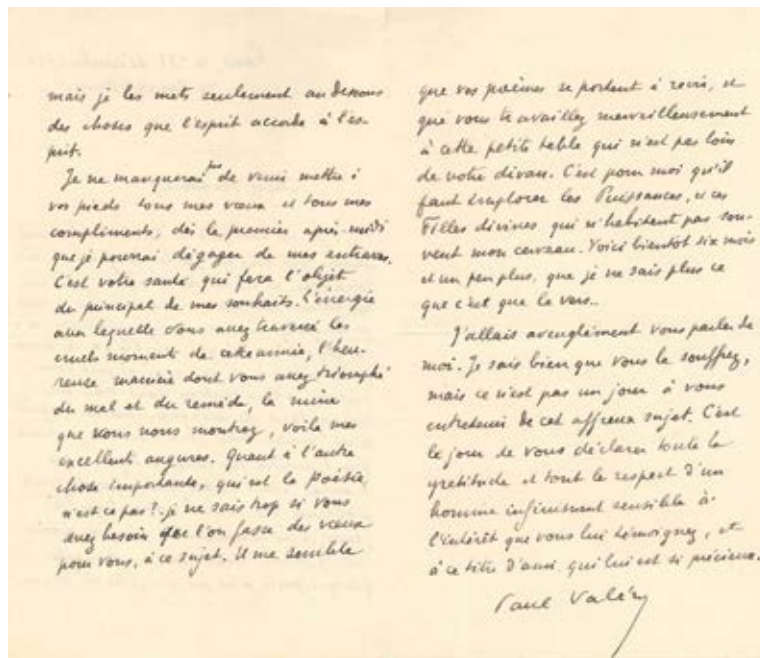 mais je les mets seulement au dessous
des choses que l'esprit accorde à l'es-
prit.
Je ne manquerai pas de venir mettre à
vos pieds tous mes vœux et tous mes
compliments, dès le premier après-midi
que je pourrai dégager de mes entraves.
C'est votre santé qui fera l'objet
du principal de mes souhaits. L'énergie
avec laquelle vous avez traversé les
cruels moments de cette année, l'heu-
reuse manière dont vous avez triomphé
du mal et du remède, la mine
que vous nous montrez, voilà mes
excellents augures. Quant à l'autre
chose importante, qui est la Poésie,
n'est ce pas?. je ne sais trop si vous
avez besoin que l'on fasse des vœux
pour vous, à ce sujet. Il me semble
que vos poèmes se portent à ravir, et
que vous travaillez merveilleusement
à cette petite table qui n'est pas loin
de votre divan. C'est pour moi qu'il
faut implorer les Puissances, et ces
Filles divines qui n'habitent pas sou-
vent mon cerveau. Voici bientôt six mois
et un peu plus, que je ne sais plus ce
que c'est que le vers..
J'allais aveuglément vous parler de
moi. Je sais bien que vous le souffrez,
mais ce n'est pas un jour à vous
entretenir de cet affreux sujet. C'est
le jour de vous déclarer toute la
gratitude et tout le respect d'un
homme infiniment sensible à
l'intérêt que vous lui témoignez, et
à ce titre d'ami qui lui est si précieux.
Paul Valéry